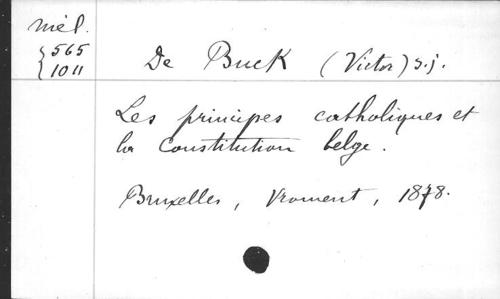 mél.
565
1011
De Buck (Victor) s.j.
Les principes catholiques et
la Constitution belge.
Bruxelles, Vroment, 1878.